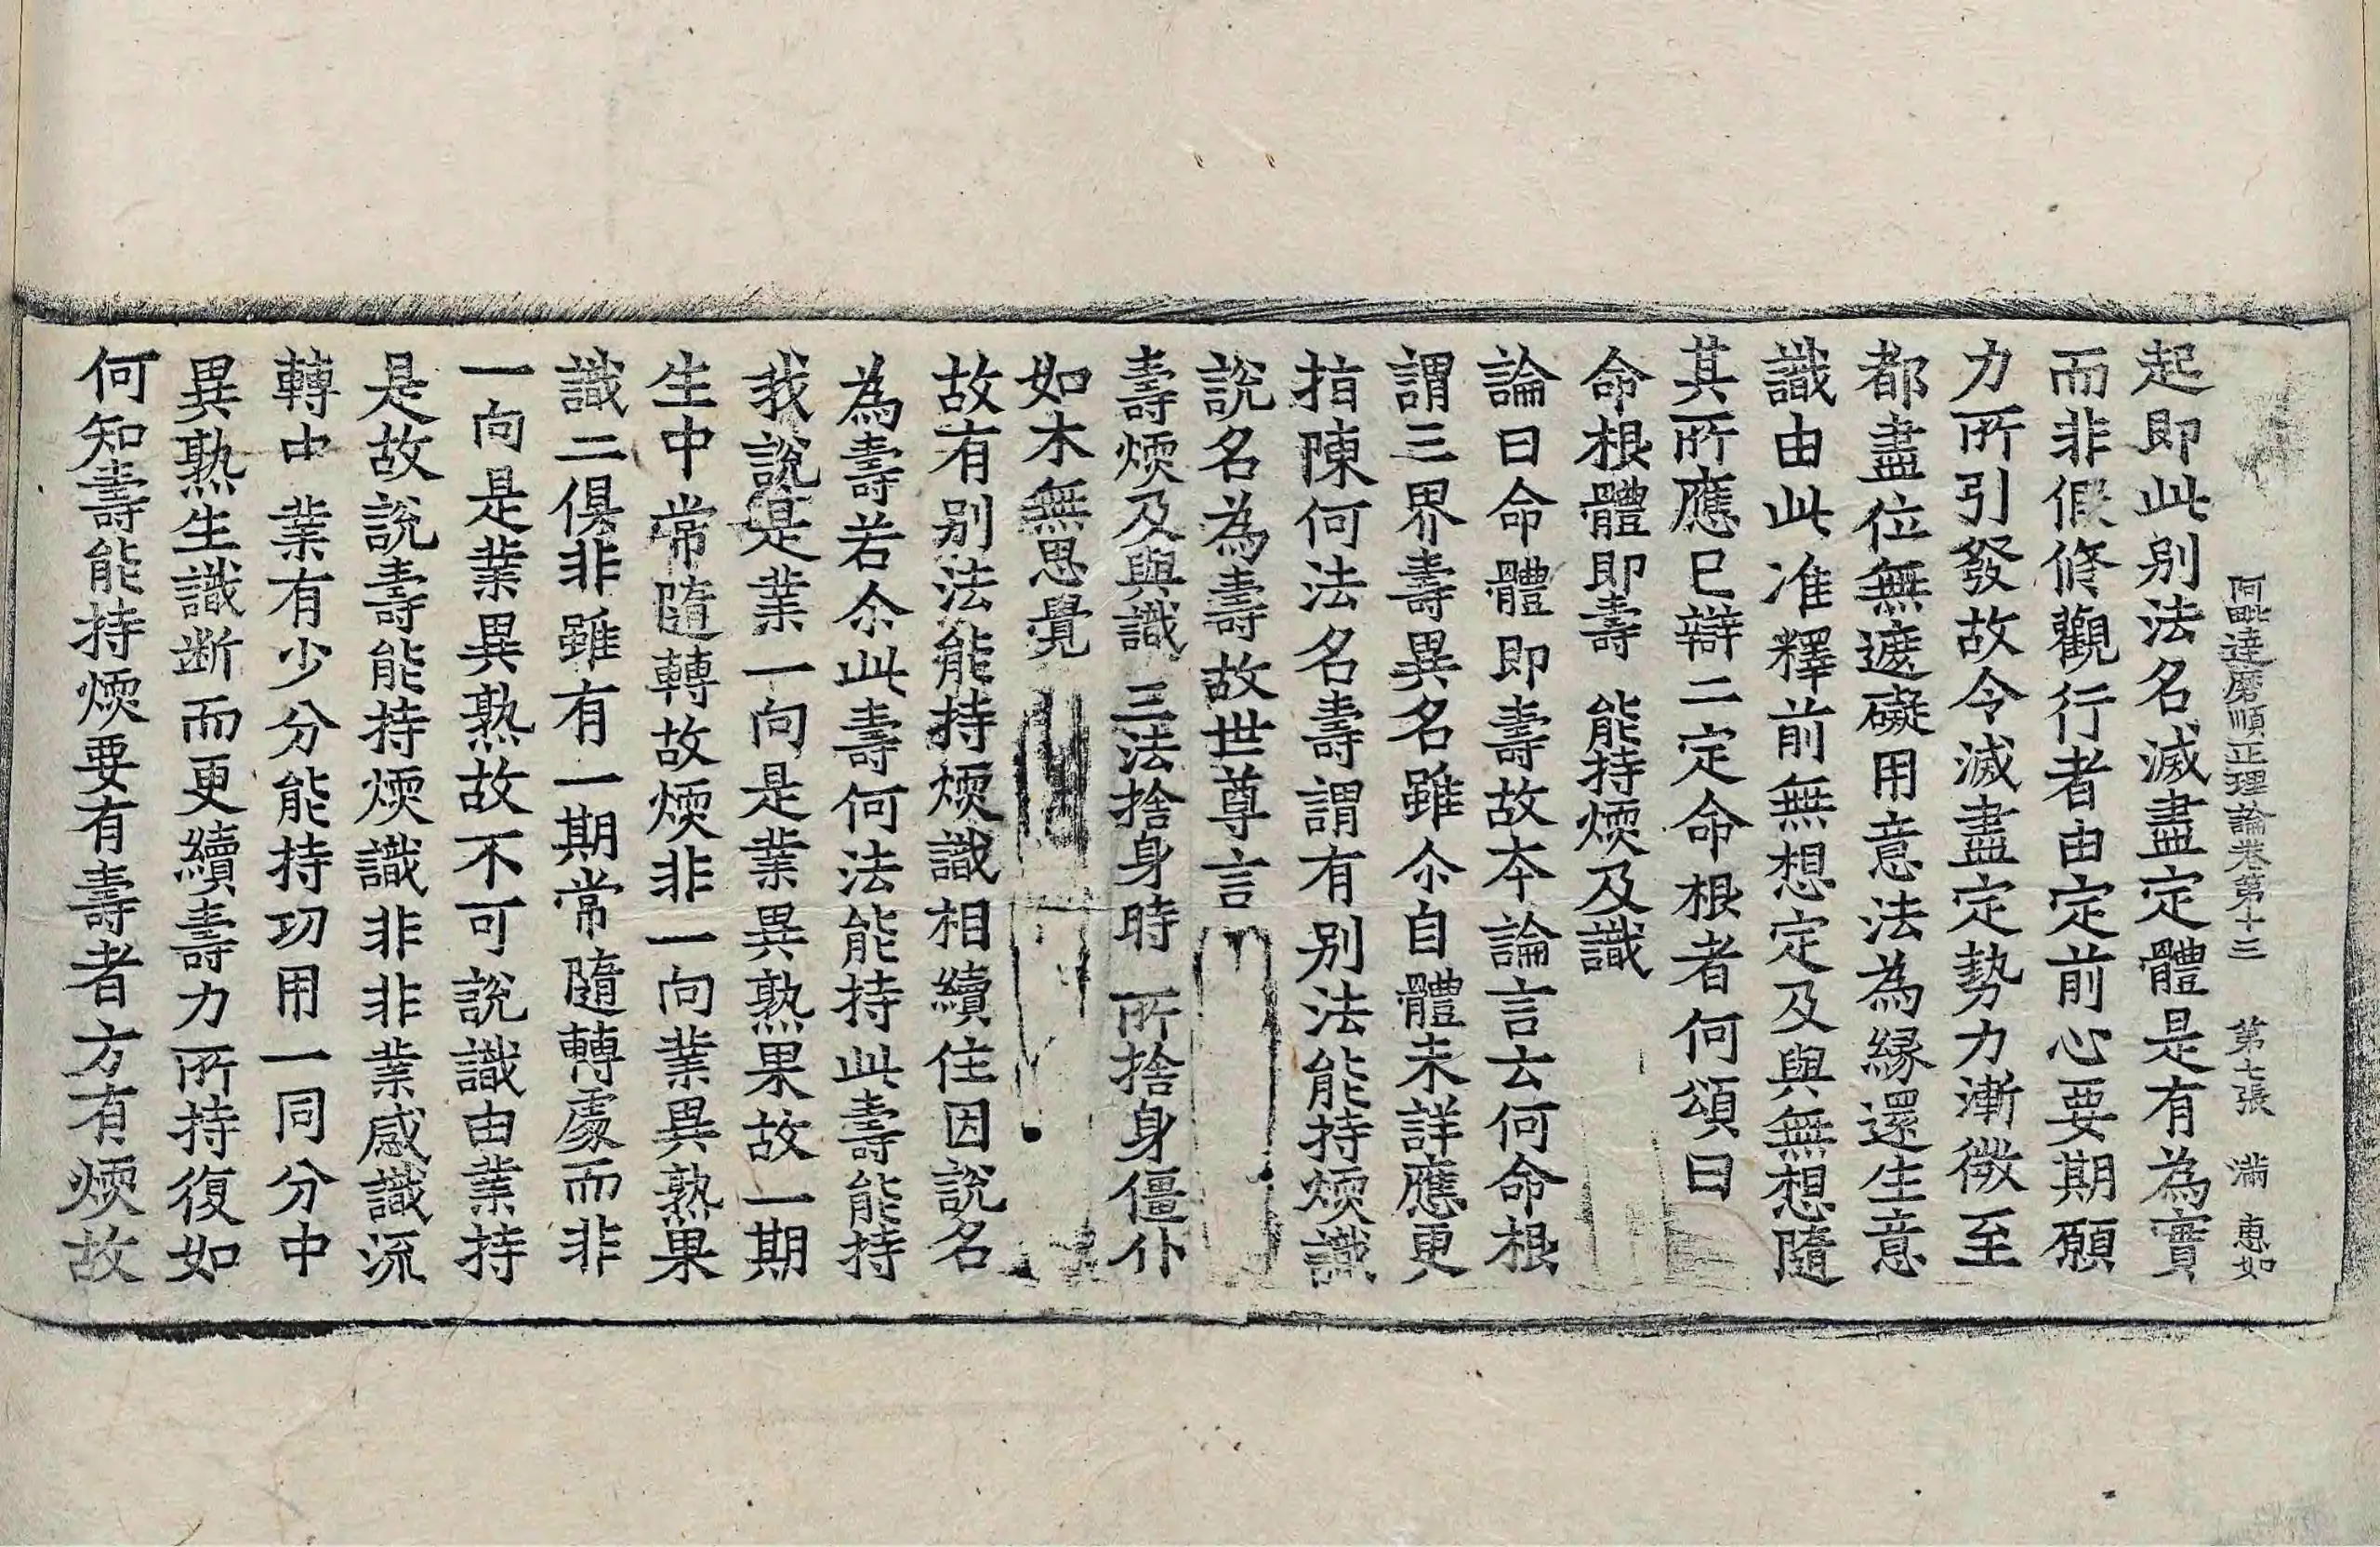 阿毗達磨順正理論卷第十三　第七張　滿　惠如
起即此別法名滅盡定體是有為實
而非假修觀行者由定前心要期願
力所引發故令滅盡定勢力漸微至
都盡位無遮礙用意法為緣還生意
識由此准釋前無想定及與無想隨
其所應已辯二定命根者何頌曰
命根體即壽　能持煗及識
論曰命體即壽故本論言云何命根
謂三界壽異名雖尒自體未詳應更
指陳何法名壽謂有別法能持煗識
說名為壽故世尊言
壽煗及與識　三法捨身時　所捨身僵仆
如木無思覺
故有別法能持煗識相續住因說名
為壽若尒此壽何法能持此壽能持
我說是業一向是業異熟果故一期
生中常隨轉故煗非一向業異熟果
識二俱非雖有一期常隨轉處而非
一向是業異熟故不可說識由業持
是故說壽能持煗識非非業感識流
轉中業有少分能持功用一同分中
異熟生識斷而更續壽力所持復如
何知壽能持煗要有壽者方有煗故